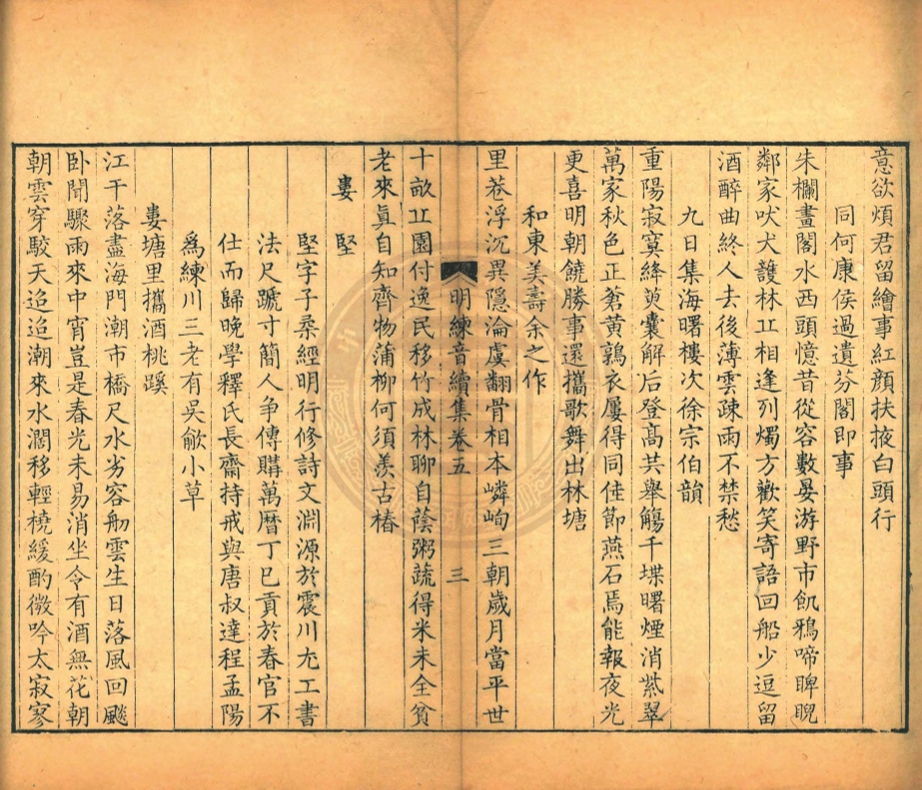 意欲煩君留繪事紅顏扶掖白頭行
同何康侯過遺芬閣即事
朱欄畫閣水西頭憶昔從容數晏游野市飢鴉啼睥睨
鄰家吠犬護林丘相逢列燭方歡笑寄語回船少逗留
酒醉曲終人去後薄雲疎雨不禁愁
九日集海曙樓次徐宗伯韻
重陽寂寞絳萸囊解后登高共舉觴千堞曙煙消紫翠
萬家秋色正蒼黃鶉衣屢得同佳節燕石焉能報夜光
更喜明朝饒勝事還攜歌舞出林塘
和東美壽余之作
里巷浮沉異隱淪虞翻骨相本嶙峋三朝歲月當平世
明練音續集卷五 三
十畝丘園付逸民移竹成林聊自蔭粥蔬得米未全貧
老來眞自知齊物蒲柳何須羨古椿
婁 堅
堅字子柔經明行修詩文淵源於震川尤工書
法尺蹏寸簡人争傳購萬曆丁巳貢於春官不
仕而歸晚學釋氏長齋持戒與唐叔達程孟陽
爲練川三老有吳歈小草
婁塘里攜酒桃蹊
江干落盡海門潮市橋尺水劣容舠雲生日落風回颷
卧聞驟雨來中宵豈是春光未易消坐令有酒無花朝
朝雲穿駮天迢迢潮來水濶移輕橈緩酌微吟太寂寥